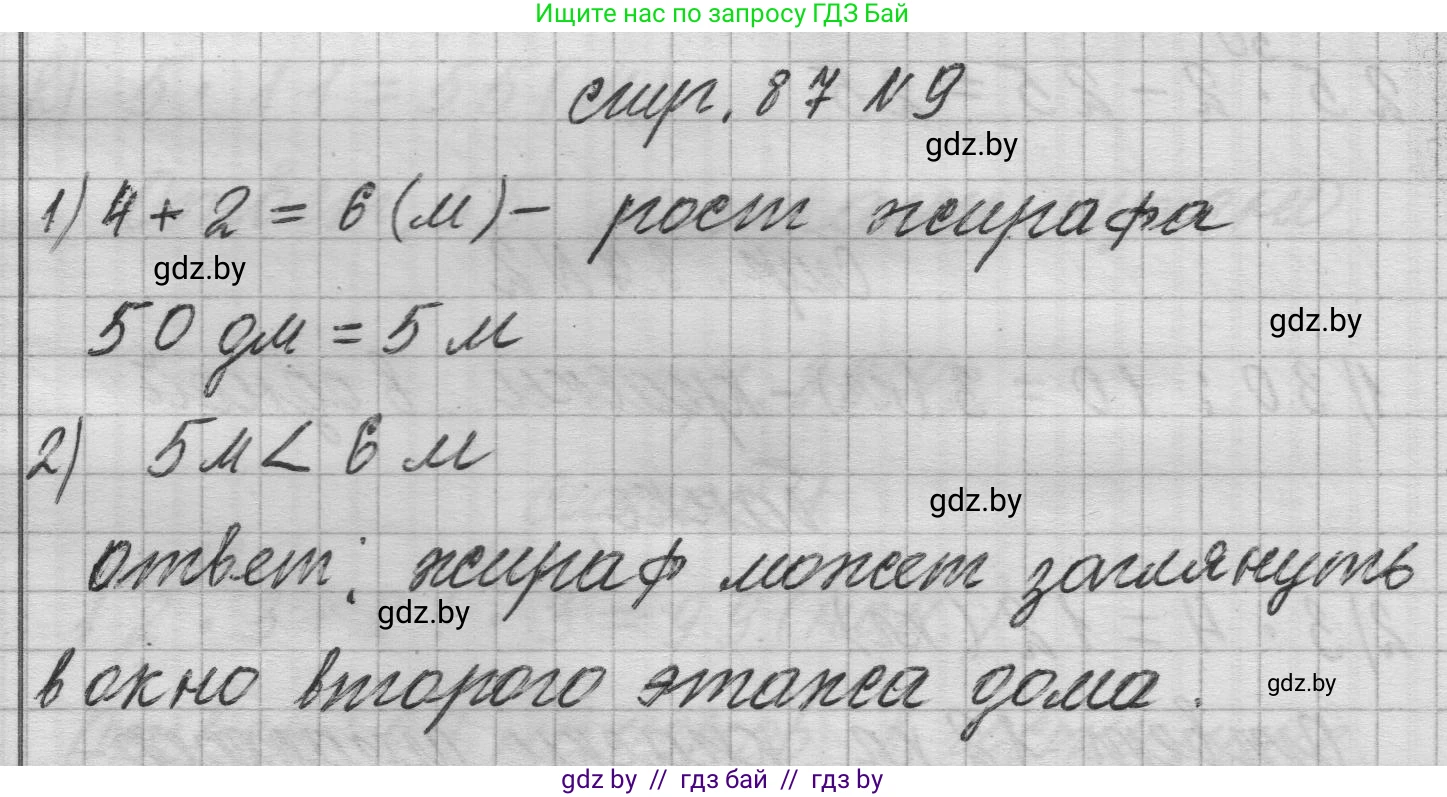 Ищите нас по запросу ГДЗ Бай
стр. 87 №9
gdz.by
1) 4 + 2 = 6 (м) – рост жирафа
gdz.by
50 дм = 5 м
gdz.by
2) 5 м < 6 м
gdz.by
ответ: жираф может заглянуть
gdz.by
в окно второго этажа дома.
gdz.by
gdz by // гдз бай // гдз by